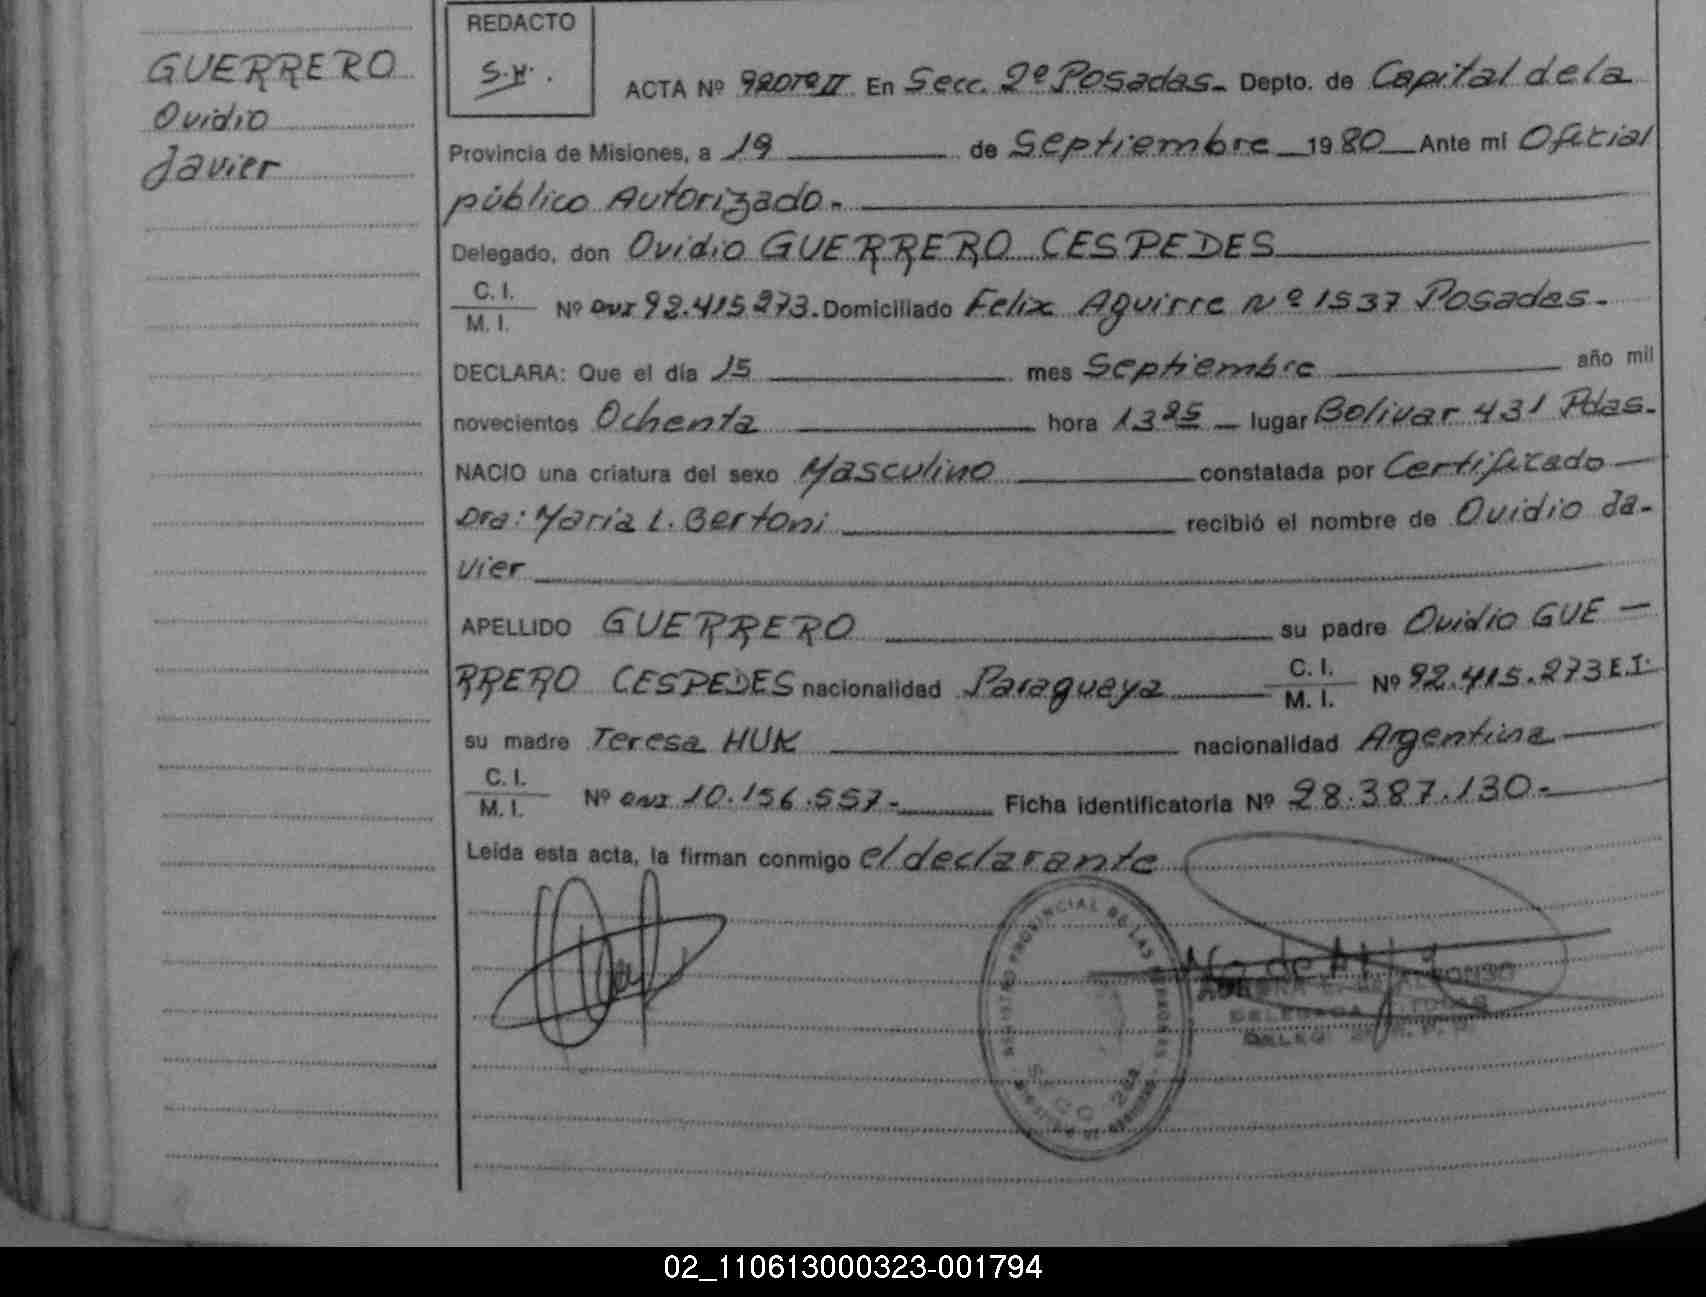 GUERRERO
Ovidio
Javier
REDACTO
S.H.
ACTA Nº En Secc. 2º Posadas.- Depto. de Capital de la
Provincia de Misiones, a 19 de Septiembre 1980 Ante mí Oficial
público Autorizado.-
Delegado, don Ovidio GUERRERO CESPEDES
C. I.
M. I. Nº DNI 92.415.273.- Domiciliado Felix Aguirre nº 1537 Posadas.-
DECLARA: Que el día 15 mes Septiembre año mil
novecientos Ochenta hora 13 25 lugar Bolivar 431 Pdas.-
NACIO una criatura del sexo Masculino constatada por Certificado
Dra: Maria L. Bertoni recibió el nombre de Ovidio Ja-
vier
APELLIDO GUERRERO su padre Ovidio GUE-
RRERO CESPEDES nacionalidad Paraguaya C. I.
M. I. Nº 92.415.273 E.T.
su madre Teresa HUK nacionalidad Argentina
C. I.
M. I. Nº DNI 10.156.557.- Ficha identificatoria Nº 28.387.130.-
Leída esta acta, la firman conmigo el declarante
REGISTRO PROVINCIAL DE LAS PERSONAS
02_110613000323-001794